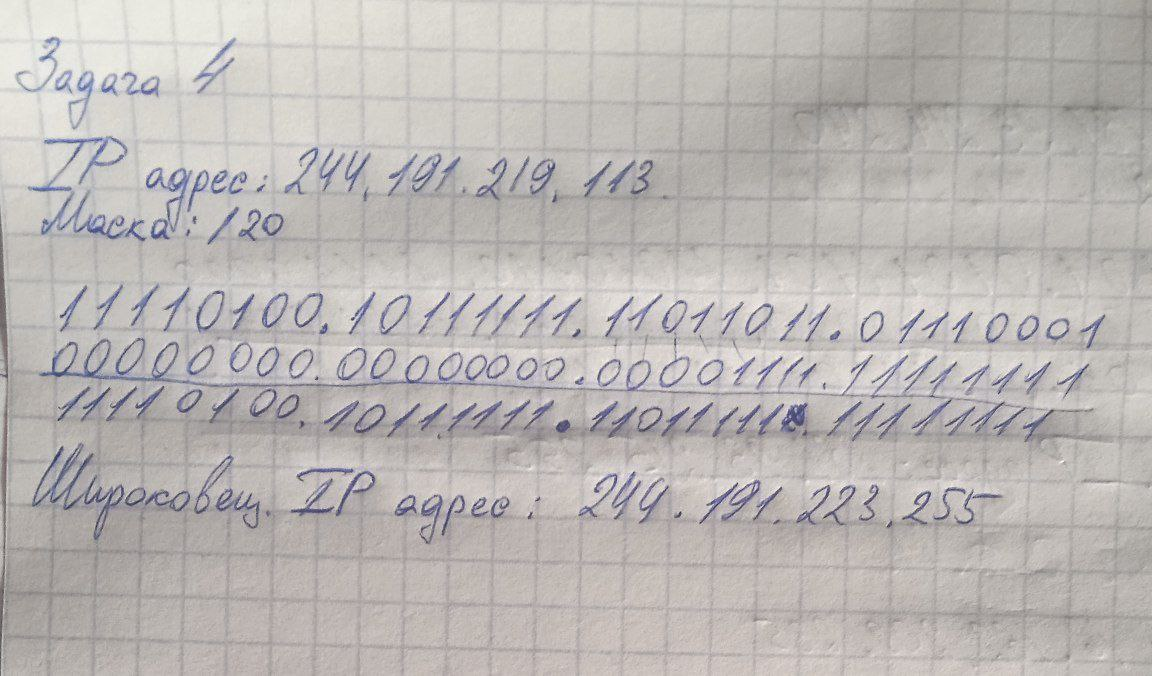 Задача 4
IP адрес: 244.191.219.113.
Маска: /20
11110100.10111111.11011011.01110001
00000000.00000000.00001111.11111111
11110100.10111111.11011111.11111111
Широковещ. IP адрес: 244.191.223.255